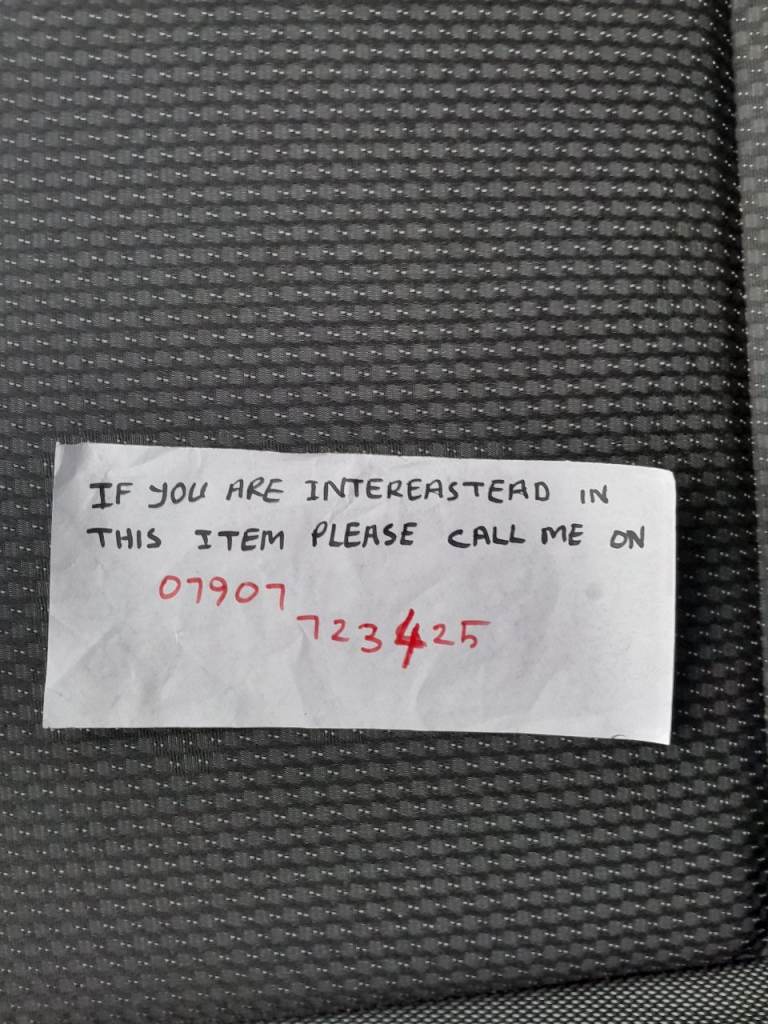 IF YOU ARE INTEREASTEAD IN
THIS ITEM PLEASE CALL ME ON
07907
723425